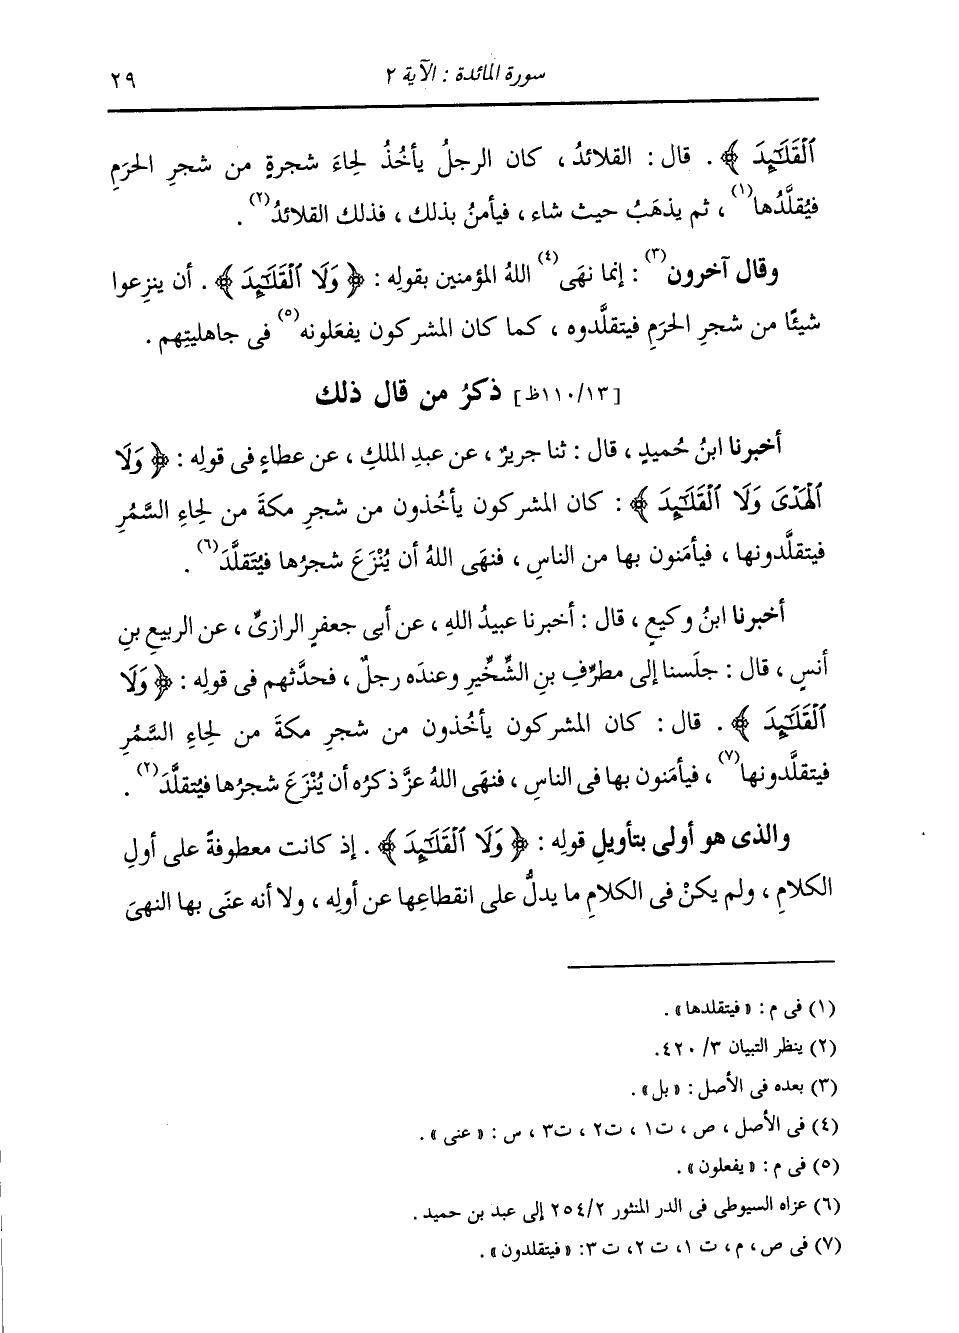 سورة المائدة : الآية ٢
٢٩
ٱلْقَلَـٰٓئِدَ ﴾ . قال : القلائدُ ، كان الرجلُ يأخُذُ لِحَاءَ شجرةٍ من شجرِ الحرَمِ
فيُقلَّدُها(١) ، ثم يذهَبُ حيث شاء ، فيأمنُ بذلك ، فذلك القلائدُ(٢) .
وقال آخرون(٣) : إنما نهَى(٤) اللهُ المؤمنين بقولِه : ﴿ وَلَا ٱلْقَلَـٰٓئِدَ ﴾ . أن ينزِعوا
شيئًا من شجرِ الحرَمِ فيتقلَّدوه ، كما كان المشركون يفعَلونه(٥) فى جاهليتِهم .
[١١٠/١٣ظ] ذكرُ من قال ذلك
أخبرنا ابنُ حُميدٍ ، قال : ثنا جريرٌ ، عن عبدِ الملكِ ، عن عطاءٍ فى قولِه : ﴿ وَلَا
ٱلْهَدْىَ وَلَا ٱلْقَلَـٰٓئِدَ ﴾ : كان المشركون يأخُذون من شجرِ مكةَ من لِحاءِ السَّمُرِ
فيتقلَّدونها ، فيأمَنون بها من الناسِ ، فنهَى اللهُ أن يُنْزَعَ شجرُها فيُتَقلَّدَ(٦) .
أخبرنا ابنُ وكيعٍ ، قال : أخبرنا عبيدُ اللهِ ، عن أبى جعفرٍ الرازىِّ ، عن الربيعِ بنِ
أنسٍ ، قال : جلَسنا إلى مطرِّفِ بنِ الشِّخِّيرِ وعندَه رجلٌ ، فحدَّثهم فى قولِه : ﴿ وَلَا
ٱلْقَلَـٰٓئِدَ ﴾ . قال : كان المشركون يأخُذون من شجرِ مكةَ من لِحاءِ السَّمُرِ
فيتقلَّدونها(٧) ، فيأمَنون بها فى الناسِ ، فنهَى اللهُ عزَّ ذكرُه أن يُنْزَعَ شجرُها فيُتقلَّدَ(٢) .
والذى هو أولى بتأويلِ قولِه : ﴿ وَلَا ٱلْقَلَـٰٓئِدَ ﴾ . إذ كانت معطوفةً على أولِ
الكلامِ ، ولم يكنْ فى الكلامِ ما يدلُّ على انقطاعِها عن أولِه ، ولا أنه عنَى بها النهىَ
(١) فى م : « فيتقلدها » .
(٢) ينظر التبيان ٣/ ٤٢٠.
(٣) بعده فى الأصل : « بل » .
(٤) فى الأصل ، ص ، ت١ ، ت٢ ، ت٣ ، س : « عنى » .
(٥) فى م : « يفعلون » .
(٦) عزاه السيوطى فى الدر المنثور ٢٥٤/٢ إلى عبد بن حميد .
(٧) فى ص ، م ، ت ١، ت ٢، ت ٣: « فيتقلدون » .